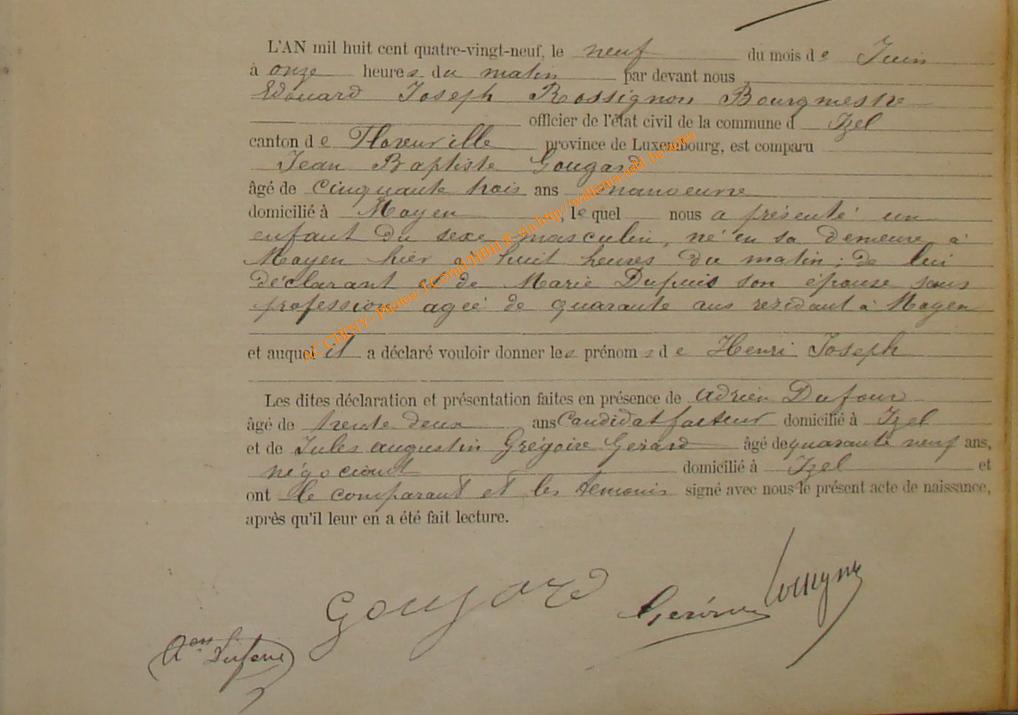 L'AN mil huit cent quatre-vingt-neuf, le neuf du mois de Juin
à onze heures du matin par devant nous
Edouard Joseph Rossignon Bourgmestre
officier de l'état civil de la commune d Izel
canton de Florenville province de Luxembourg, est comparu
Jean Baptiste Gougard
âgé de cinquante trois ans manoeuvre
domicilié à Moyen, lequel nous a présenté un
enfant du sexe masculin, né en sa demeure à
Moyen hier à huit heures du matin; de lui
déclarant et de Marie Dupuis son épouse sans
profession agée de quarante ans residant à Moyen
et auquel il a déclaré vouloir donner les prénoms de Henri Joseph
Les dites déclaration et présentation faites en présence de Adrien Dufour
âgé de trente deux ans Candidat facteur domicilié à Izel
et de Jules Augustin Grégoire Gerard âgé de quarante neuf ans,
négociant domicilié à Izel et
ont le comparant et les temoins signé avec nous le présent acte de naissance,
après qu'il leur en a été fait lecture.
Goujard
Dufour